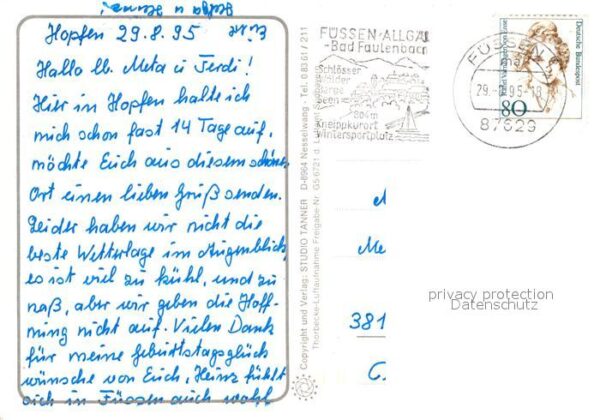 Hopfen 29.8.95
Hallo lb. Meta u Ferdi!
Hier in Hopfen halte ich
mich schon fast 14 Tage auf,
möchte Euch aus diesem schönen
Ort einen lieben Gruß senden.
Leider haben wir nicht die
beste Wetterlage im Augenblick,
es ist viel zu kühl, und zu
naß, aber wir geben die Hoff-
nung nicht auf. Vielen Dank
für meine Geburtstagsglück
wünsche von Euch, Heinz fühlt
sich in Füssen auch wohl
FÜSSEN/ALLGÄU
-Bad Faulenbach
Schlösser
Wälder
Berge
Seen
804m
Kneippkurort
Wintersportplatz
FÜSSEN
29.-8.95-18
87629
Deutsche Bundespost
80
Copyright und Verlag: STUDIO TANNER D-8964 Nesselwang · Tel. 0 83 61 / 211
Thorbecke-Luftaufnahme Freigabe-Nr. G5/6721 d.
Me
381
privacy protection
Datenschutz